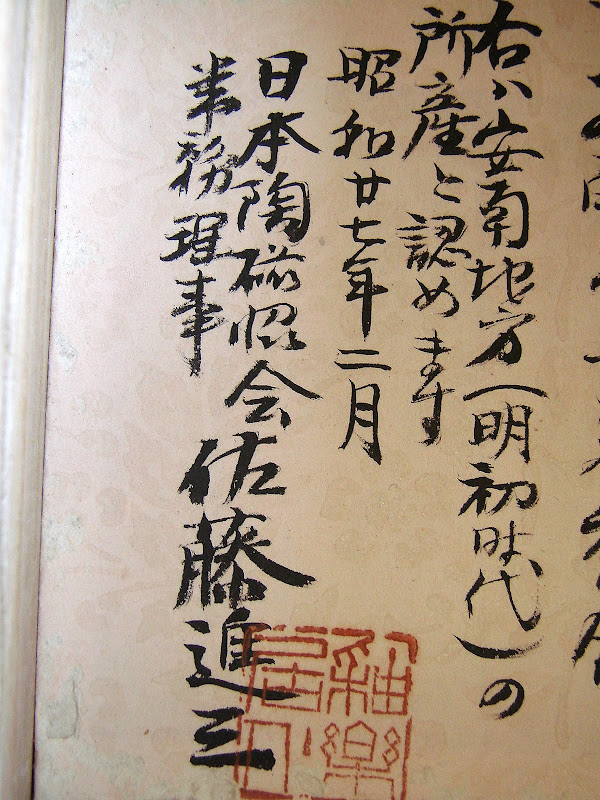 右ハ安南地方(明初时代)の
所産と認めます
昭和廿七年二月
日本陶磁協会
常務理事
佐藤進三